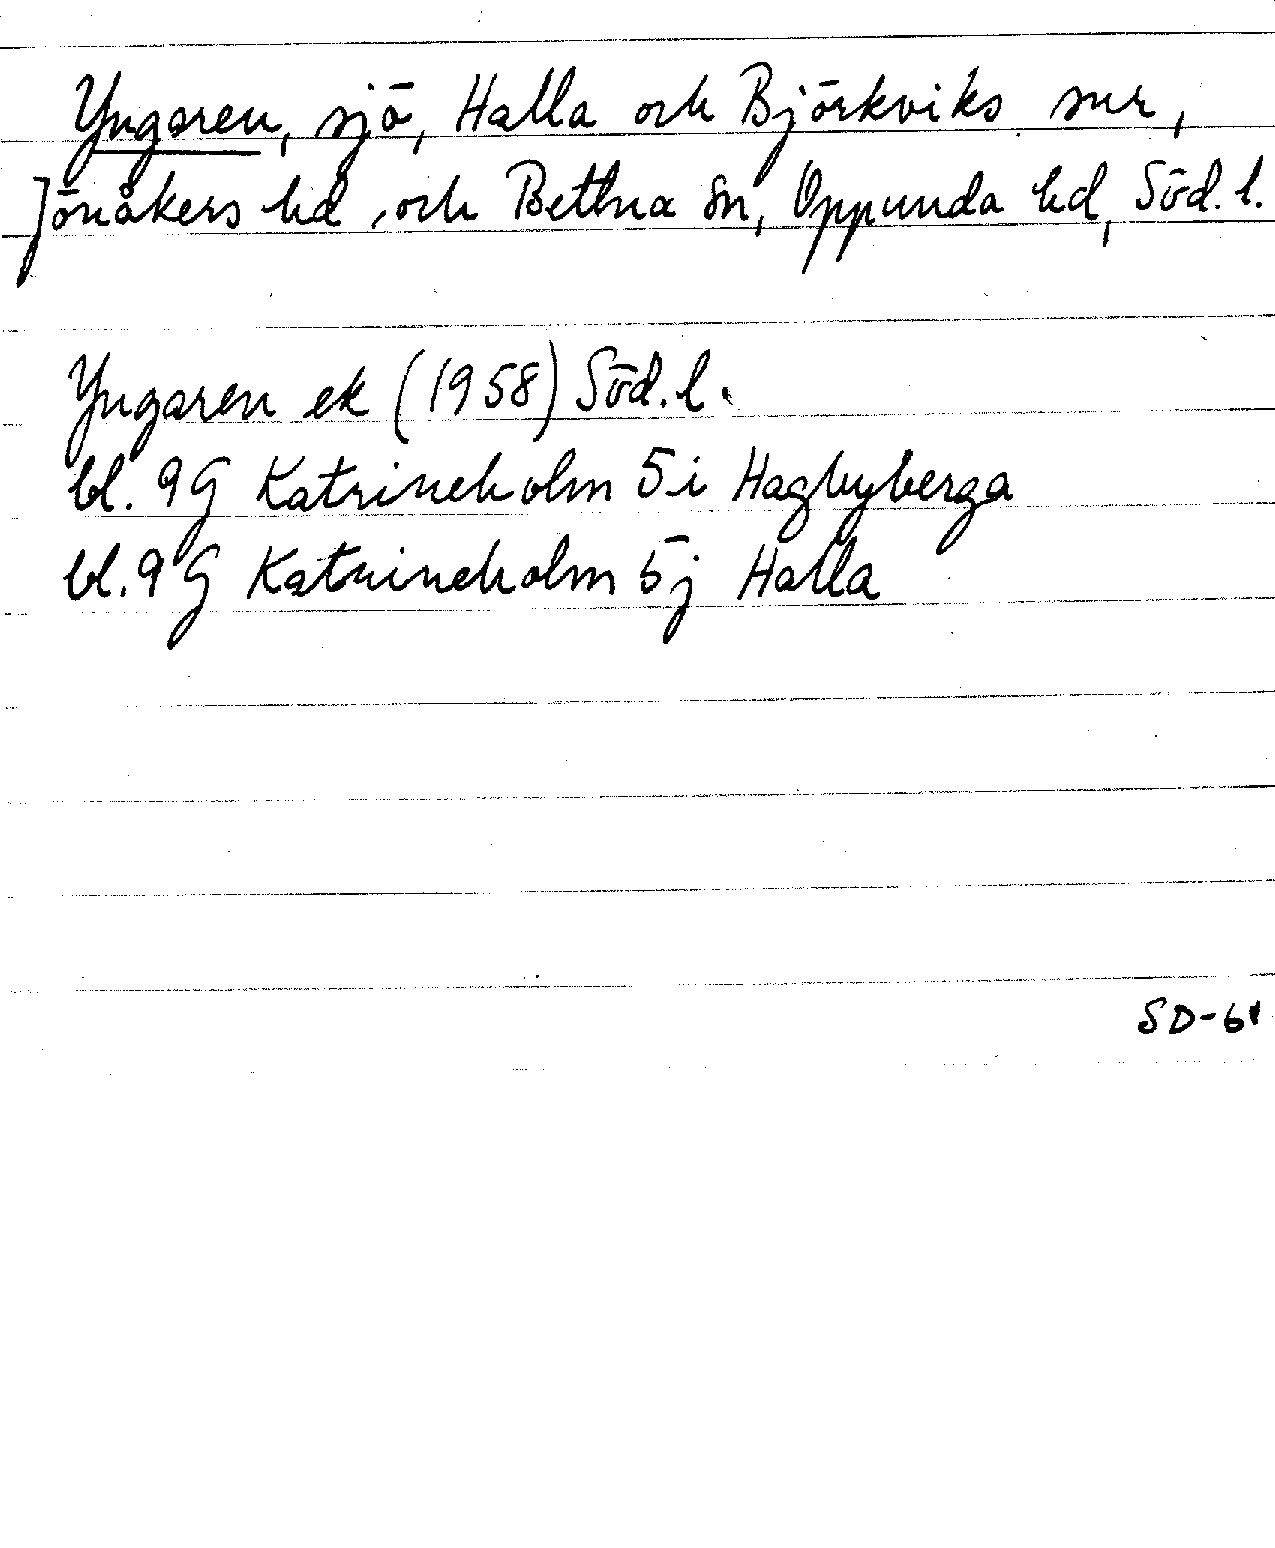 Yngaren, sjö, Halla och Björkviks snr,
Jönåkers hd, och Bettna sn, Oppunda hd, Söd. l.
Yngaren ek (1958) Söd. l.
bl. 9G Katrineholm 5i Hagbyberga
bl. 9G Katrineholm 5j Halla
SD-61